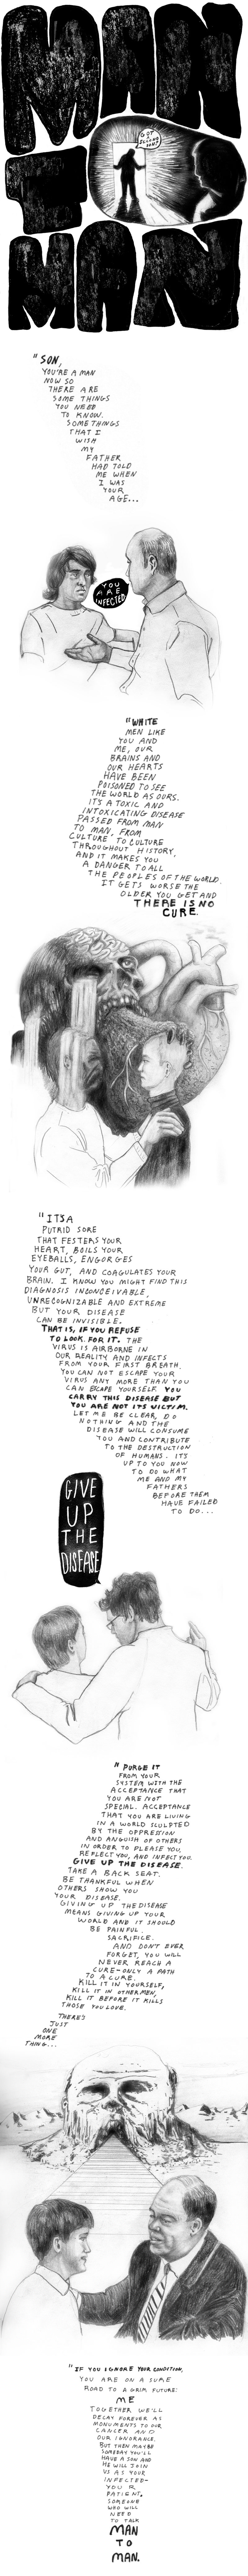 MAN
TO
MAN
GOT
A
SECOND
SON?
"SON,
YOU'RE A MAN
NOW SO
THERE ARE
SOME THINGS
YOU NEED
TO KNOW.
SOME THINGS
THAT I
WISH
MY
FATHER
HAD TOLD
ME WHEN
I WAS
YOUR
AGE...
YOU
ARE
INFECTED
"WHITE
MEN LIKE
YOU AND
ME, OUR
BRAINS AND
OUR HEARTS
HAVE BEEN
POISONED TO SEE
THE WORLD AS OURS.
IT'S A TOXIC AND
INTOXICATING DISEASE
PASSED FROM MAN
TO MAN, FROM
CULTURE TO CULTURE
THROUGHOUT HISTORY,
AND IT MAKES YOU
A DANGER TO ALL
THE PEOPLES OF THE WORLD.
IT GETS WORSE THE
OLDER YOU GET AND
THERE IS NO
CURE.
"IT'S A
PUTRID SORE
THAT FESTERS YOUR
HEART, BOILS YOUR
EYEBALLS, ENGORGES
YOUR GUT, AND COAGULATES YOUR
BRAIN. I KNOW YOU MIGHT FIND THIS
DIAGNOSIS INCONCEIVABLE,
UNRECOGNIZABLE AND EXTREME
BUT YOUR DISEASE
CAN BE INVISIBLE,
THAT IS, IF YOU REFUSE
TO LOOK FOR IT. THE
VIRUS IS AIRBORNE IN
OUR REALITY AND INFECTS
FROM YOUR FIRST BREATH.
YOU CAN NOT ESCAPE YOUR
VIRUS ANY MORE THAN YOU
CAN ESCAPE YOURSELF. YOU
CARRY THIS DISEASE BUT
YOU ARE NOT ITS VICTIM.
LET ME BE CLEAR, DO
NOTHING AND THE
DISEASE WILL CONSUME
YOU AND CONTRIBUTE
TO THE DESTRUCTION
OF HUMANS. IT'S
UP TO YOU NOW
TO DO WHAT
ME AND MY
FATHERS
BEFORE THEM
HAVE FAILED
TO DO...
GIVE
UP
THE
DISEASE
"PURGE IT
FROM YOUR
SYSTEM WITH THE
ACCEPTANCE THAT
YOU ARE NOT
SPECIAL. ACCEPTANCE
THAT YOU ARE LIVING
IN A WORLD SCULPTED
BY THE OPPRESSION
AND ANGUISH OF OTHERS
IN ORDER TO PLEASE YOU,
REFLECT YOU, AND INFECT YOU.
GIVE UP THE DISEASE.
TAKE A BACK SEAT.
BE THANKFUL WHEN
OTHERS SHOW YOU
YOUR DISEASE.
GIVING UP THE DISEASE
MEANS GIVING UP YOUR
WORLD AND IT SHOULD
BE PAINFUL.
SACRIFICE.
AND DON'T EVER
FORGET, YOU WILL
NEVER REACH A
CURE—ONLY A PATH
TO A CURE.
KILL IT IN YOURSELF,
KILL IT IN OTHER MEN,
KILL IT BEFORE IT KILLS
THOSE YOU LOVE.
THERE'S
JUST
ONE
MORE
THING...
"IF YOU IGNORE YOUR CONDITION,
YOU ARE ON A SURE
ROAD TO A GRIM FUTURE:
ME
TOGETHER WE'LL
DECAY FOREVER AS
MONUMENTS TO OUR
CANCER AND
OUR IGNORANCE.
BUT THEN MAYBE
SOMEDAY YOU'LL
HAVE A SON AND
HE WILL JOIN
US AS YOUR
INFECTED—
YOUR
PATIENT,
SOMEONE
WHO WILL
NEED
TO TALK
MAN
TO
MAN.